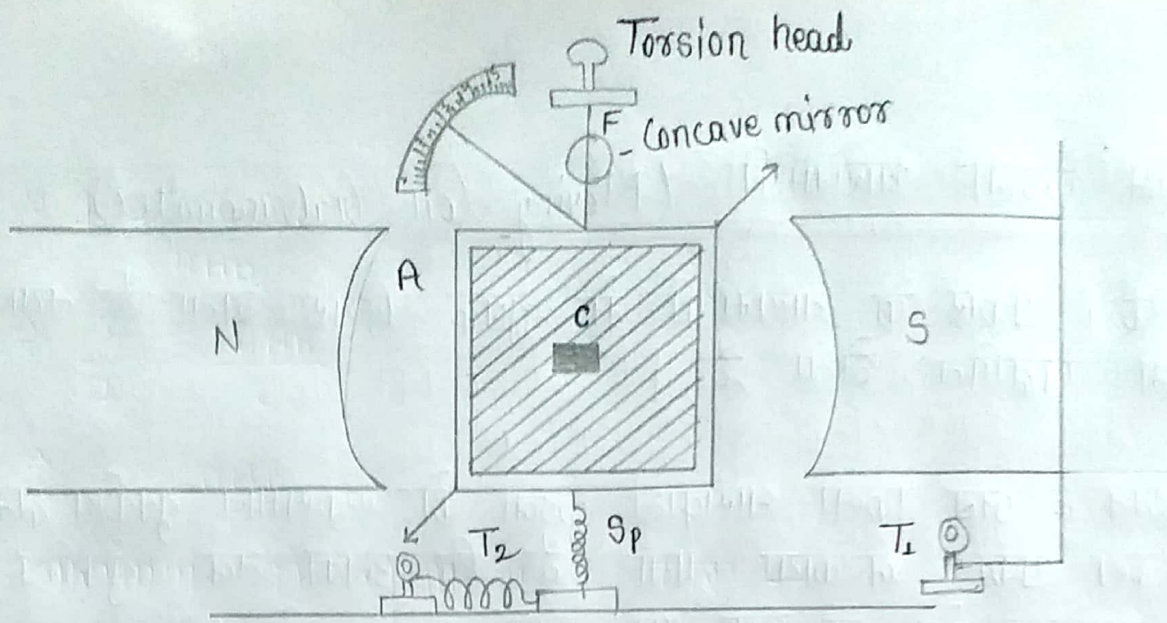 Torsion head
F
Concave mirror
A
N
C
S
T2
Sp
T1